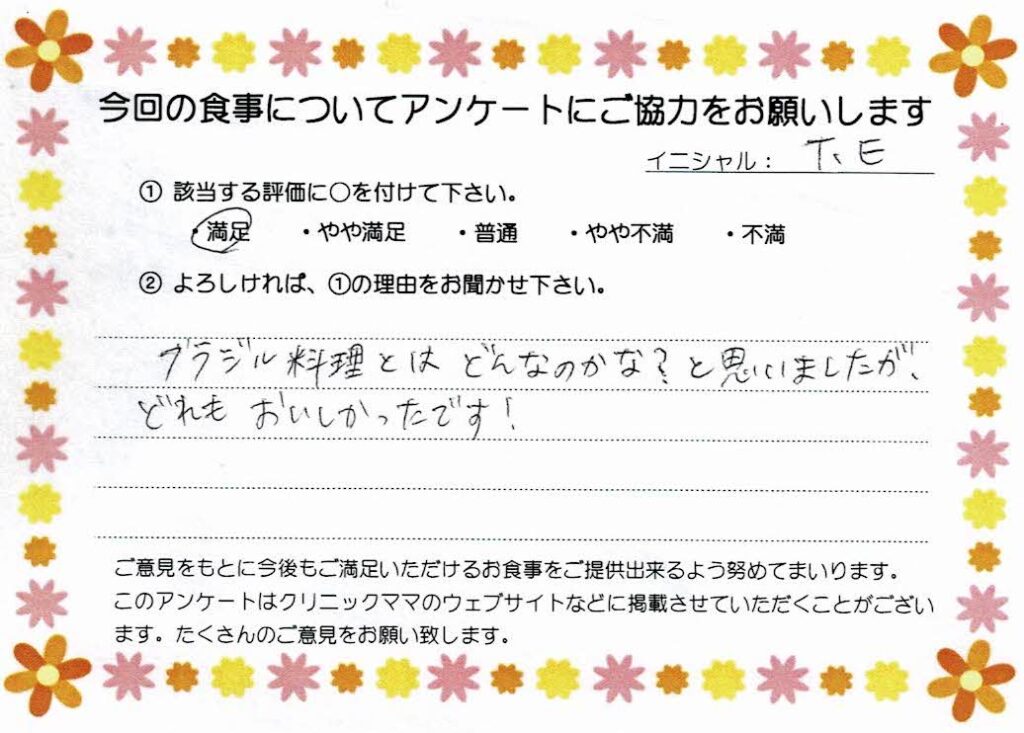 今回の食事についてアンケートにご協力をお願いします
イニシャル： T、E
① 該当する評価に〇を付けて下さい。
・満足 ・やや満足 ・普通 ・やや不満 ・不満
② よろしければ、①の理由をお聞かせ下さい。
ブラジル料理とは どんなのかな？と思いましたが、
どれも おいしかったです！
ご意見をもとに今後もご満足いただけるお食事をご提供出来るよう努めてまいります。
このアンケートはクリニックママのウェブサイトなどに掲載させていただくことがござい
ます。たくさんのご意見をお願い致します。